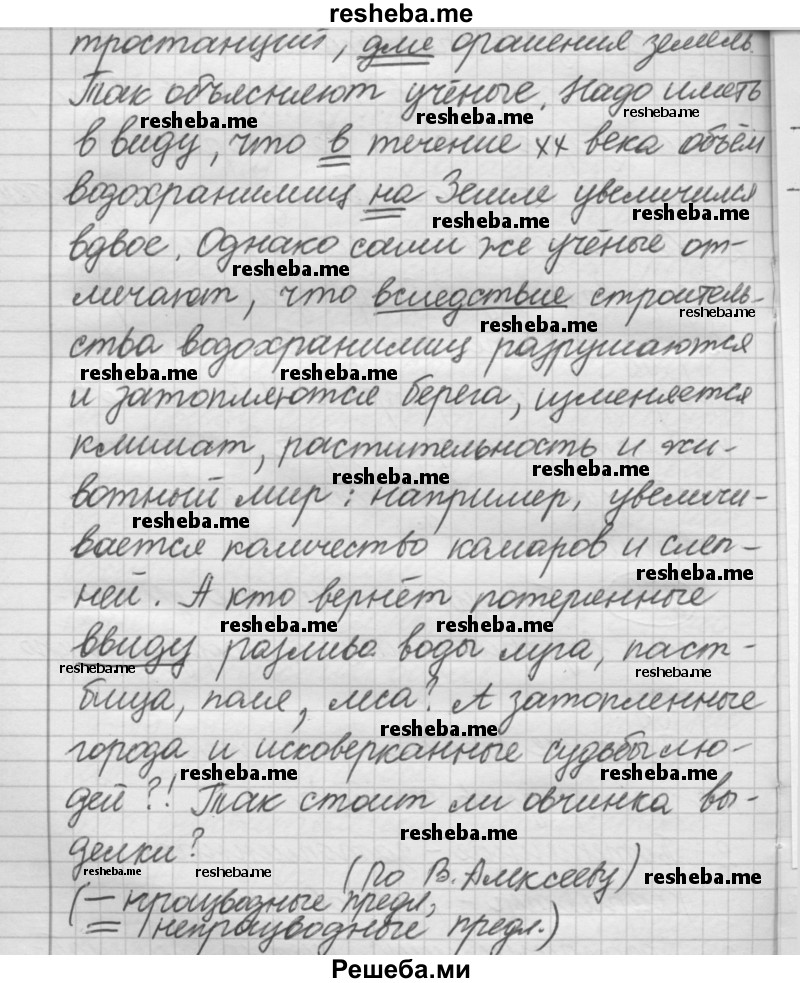 resheba.me
тростанций, для орошения земель.
Так объясняют учёные. Надо иметь
resheba.me resheba.me resheba.me
в виду, что в течение XX века объём
водохранилищ на Земле увеличился
resheba.me resheba.me
вдвое. Однако сами же учёные от-
resheba.me
мечают, что вследствие строитель-
resheba.me resheba.me
ства водохранилищ разрушаются
resheba.me resheba.me
и затопляются берега, изменяется
климат, растительность и жи-
resheba.me resheba.me
вотный мир: например, увеличи-
resheba.me
вается количество комаров и слеп-
resheba.me
ней. А кто вернёт потерянные
resheba.me resheba.me
ввиду разлива воды луга, паст-
resheba.me resheba.me
бища, поля, леса? А затопленные
resheba.me
города и исковерканные судьбы лю-
resheba.me resheba.me
дей?! Так стоит ли овчинка вы-
resheba.me
делки?
resheba.me resheba.me resheba.me
(По В. Алексееву)
(— производные предл,
= непроизводные предл.)
Решеба.ми